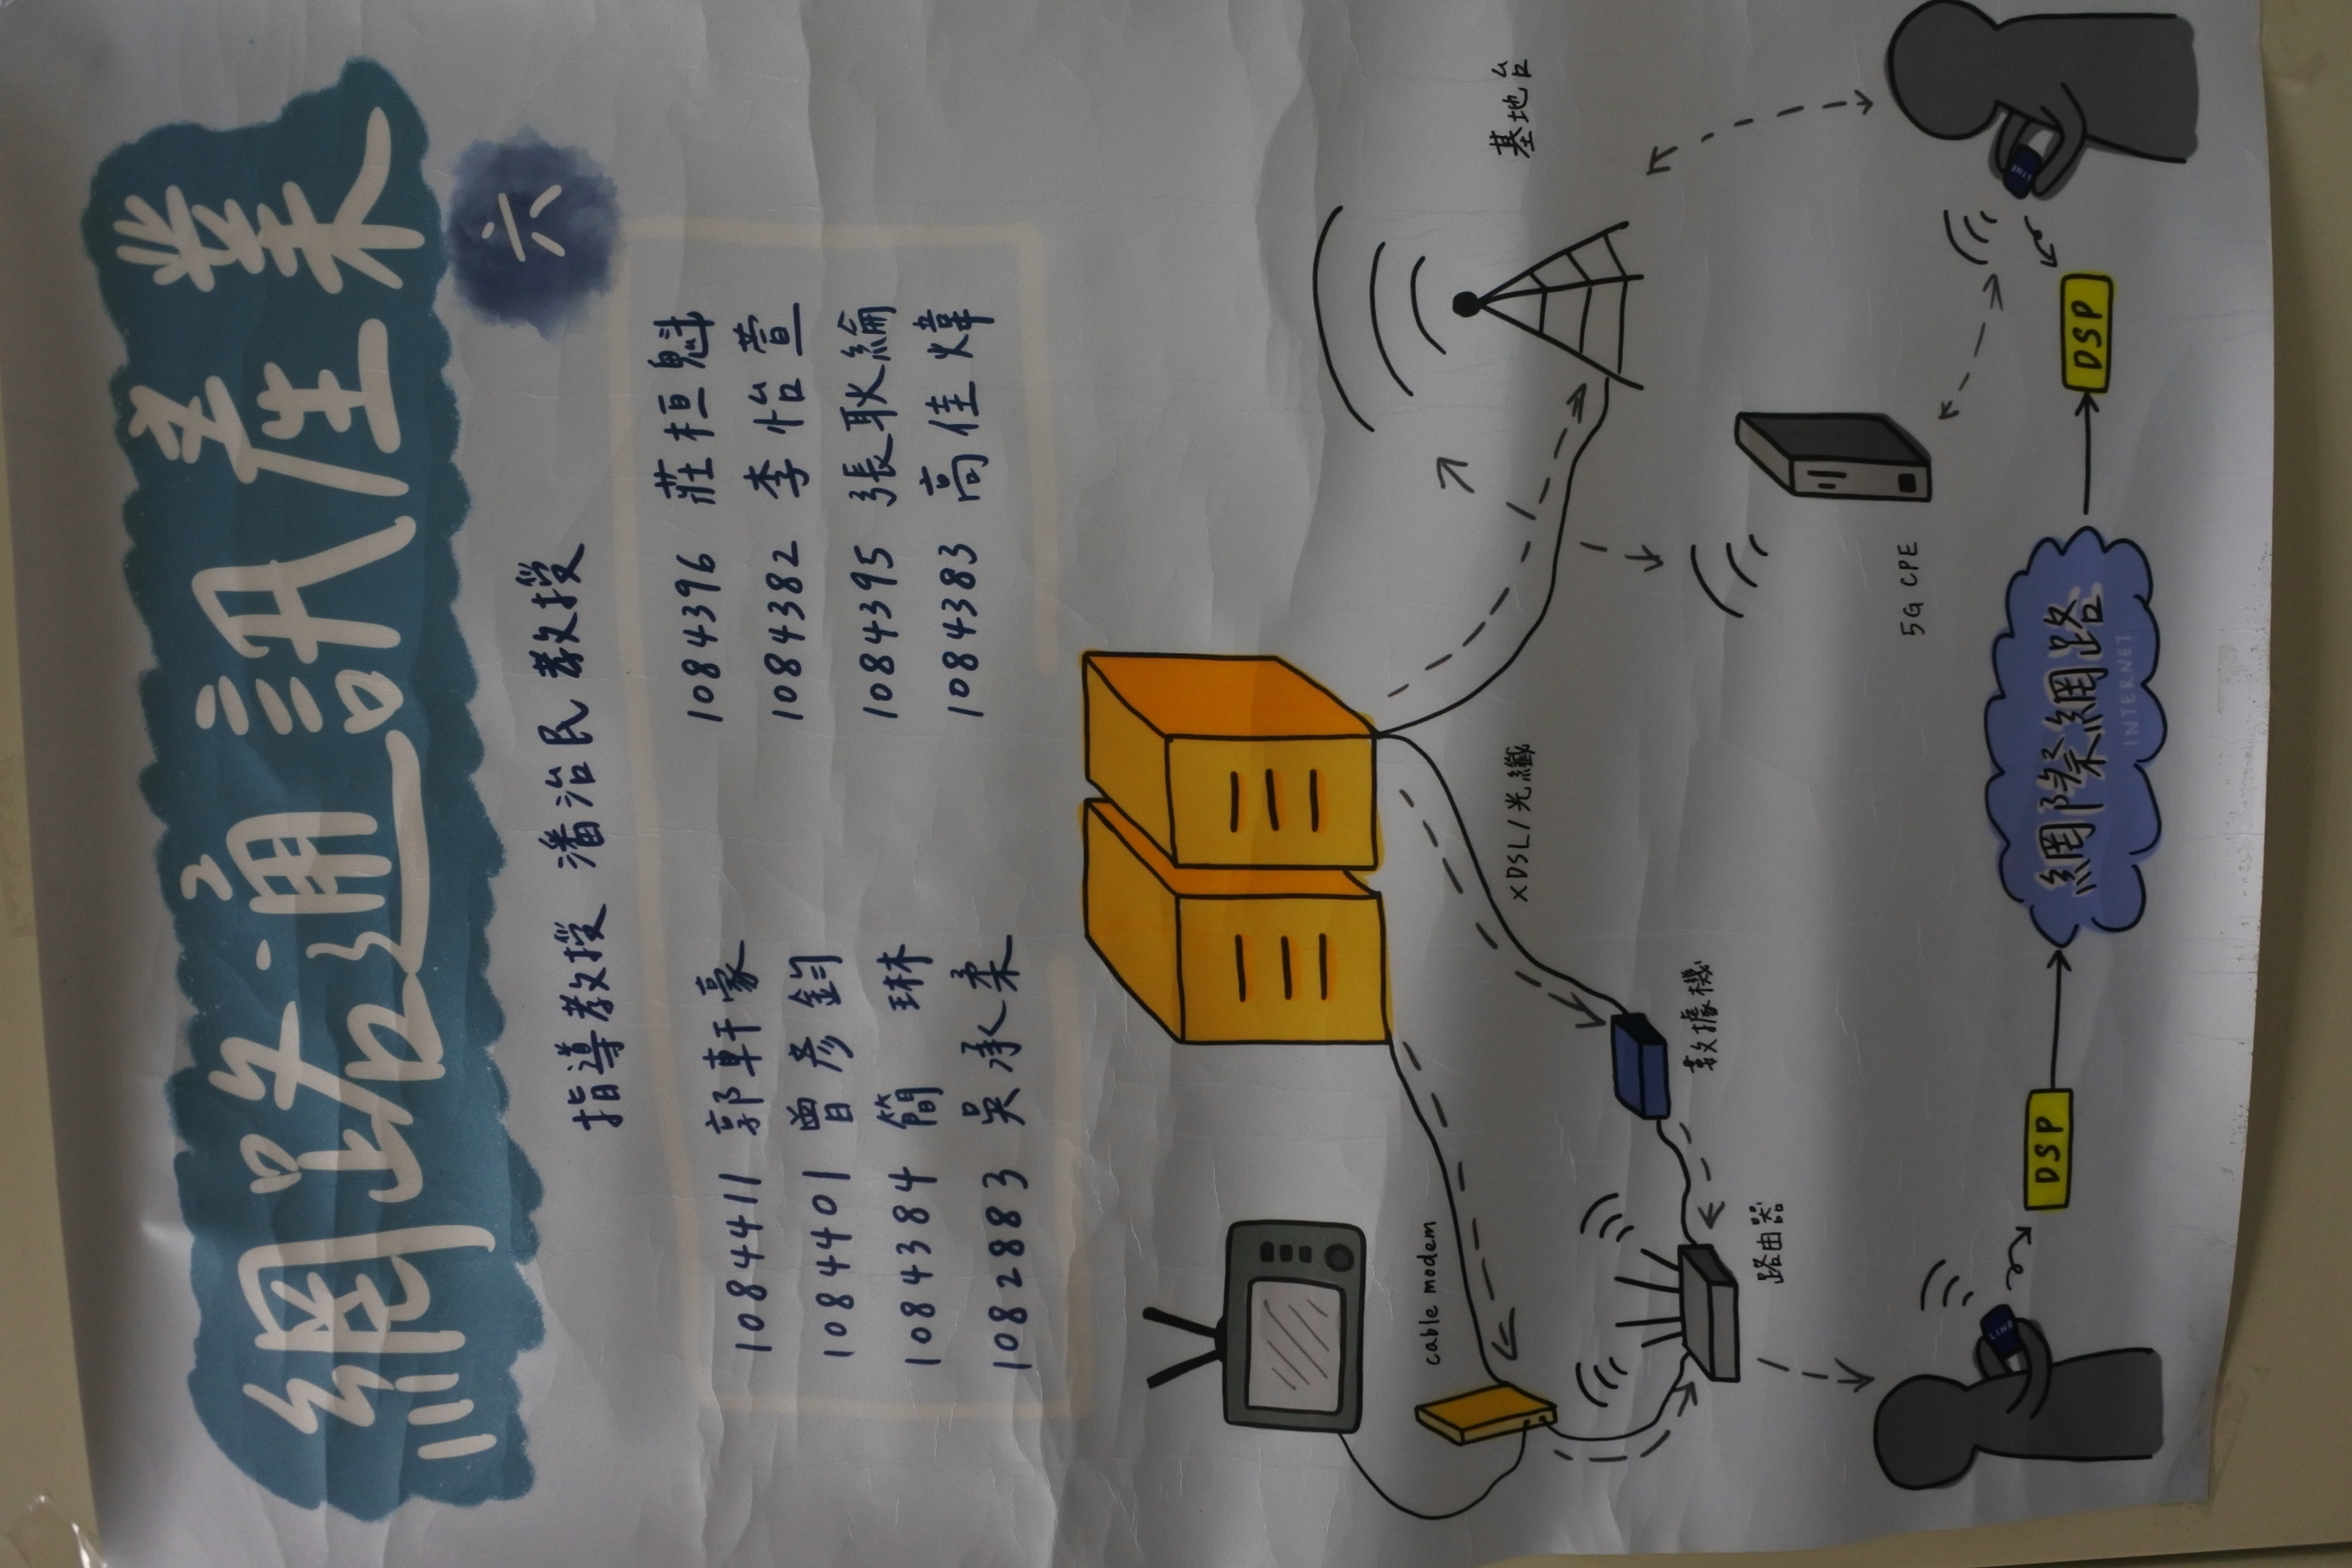 網路通訊產業
六
指導教授 潘治民教授
1084411 郭軒豪
1084396 莊桓魁
1084401 曾彥鈞
1084382 李怡萱
1084384 簡琳
1084395 張耿綸
1082883 吳承柔
1084383 高佳煒
cable modem
xDSL/光纖
基地台
數據機
路由器
5G CPE
LINE
DSP
網際網路
INTERNET
DSP
LINE